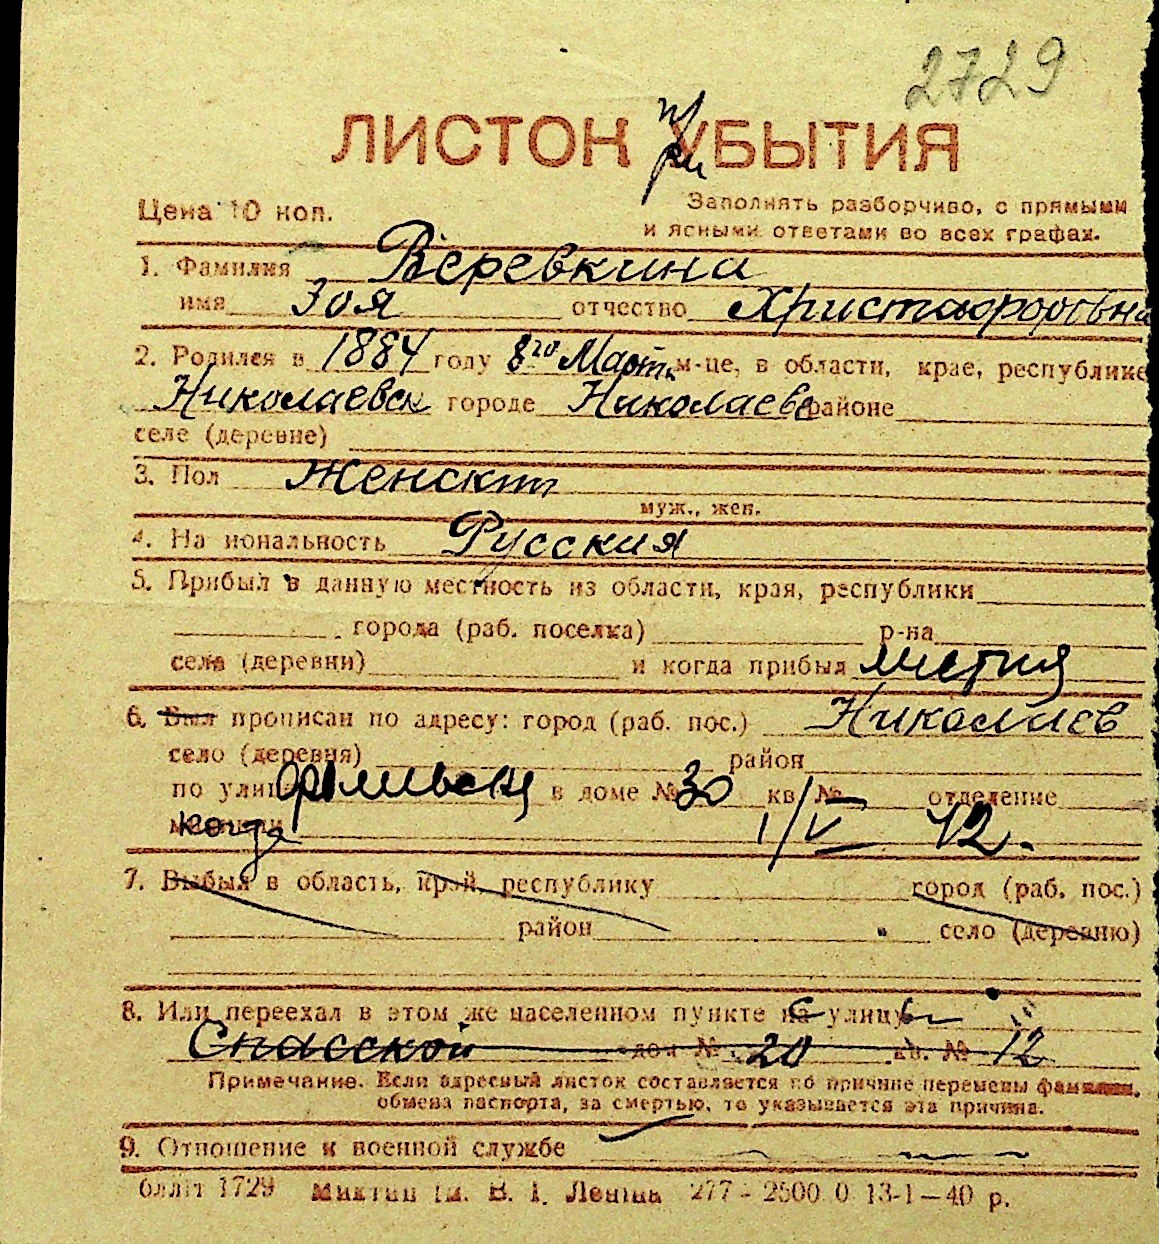 2729
ЛИСТОК УБЫТИЯ
при
Цена 10 коп.
Заполнять разборчиво, с прямыми
и ясными ответами во всех графах.
1. Фамилия Веревкина
имя Зоя отчество Христофоровна
2. Родился в 1884 году 8го Март м-це, в области, крае, республике
Николаевск городе Николаеве районе
селе (деревне)
3. Пол Женский
муж., жен.
4. На иональность Русская
5. Прибыл в данную местность из области, края, республики
города (раб. поселка) р-на
села (деревни) и когда прибыл
6. Был прописан по адресу: город (раб. пос.) Николаев
село (деревня) район
по улице в доме № 30 кв. № отделение
милиции когда 1/V 42.
7. Выбыл в область, край, республику город (раб. пос.)
район село (деревню)
8. Или переехал в этом же населенном пункте на улицу
Спасской дом № 20 кв. № 12
Примечание. Если адресный листок составляется по причине перемены фамилии,
обмена паспорта, за смертью, то указывается эта причина.
9. Отношение к военной службе
бллiт 1729 Миктип iм. В. І. Ленiна 277 - 2500 0 13-1—40 р.